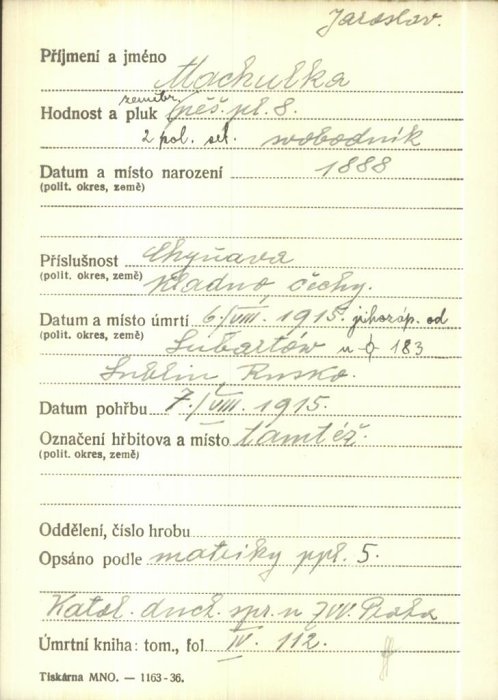 Jaroslav.
Příjmení a jméno
Machulka
zeměbr.
Hodnost a pluk pěš. pl. 8.
2 pol. set. svobodník
Datum a místo narození 1888
(polit. okres, země)
Příslušnost Chyňava
(polit. okres, země) Kladno, Čechy.
Datum a místo úmrtí 6/VIII. 1915. jihozáp. od
(polit. okres, země) Lubartów u 183
Lublin Rusko.
Datum pohřbu 7./VIII. 1915.
Označení hřbitova a místo tamtéž.
(polit. okres, země)
Oddělení, číslo hrobu
Opsáno podle matriky ppl. 5.
Katol. duch. spr. u ZVV. Praha
Úmrtní kniha: tom., fol IV. 112.
Tiskárna MNO. — 1163-36.